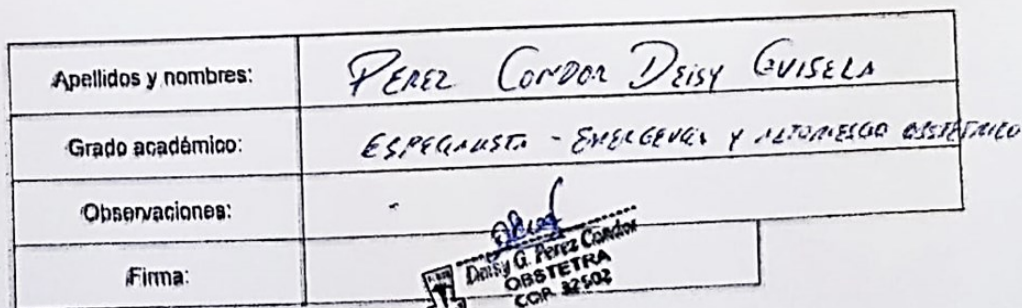 Apellidos y nombres: PEREZ CONDOR DEISY GUISELA
Grado académico: ESPECIALISTA - EMERGENCIA Y ALTO RIESGO OBSTETRICO
Observaciones: -
Firma:
Deisy G. Perez Condor
OBSTETRA
COP. 32502